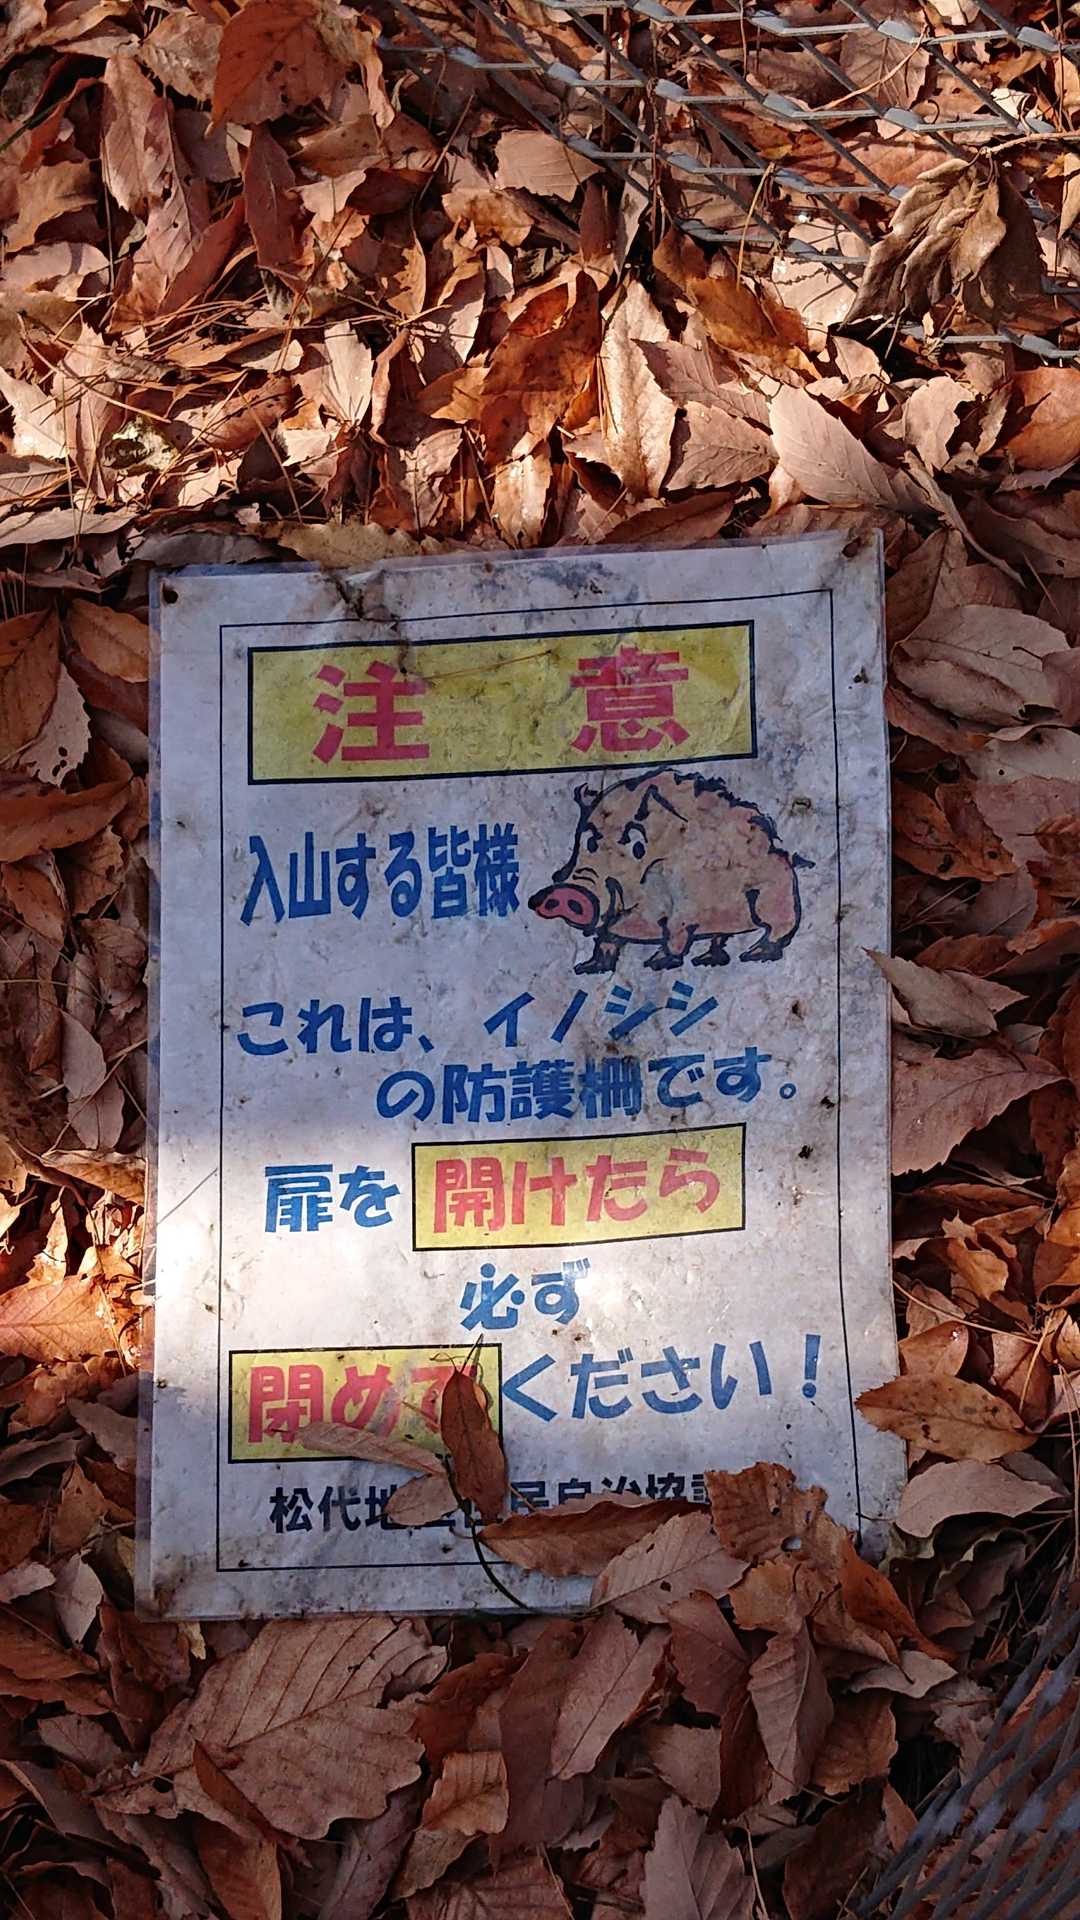 注意
入山する皆様
これは、イノシシ
の防護柵です。
扉を開けたら
必ず
閉めてください！
松代地区住民自治協議